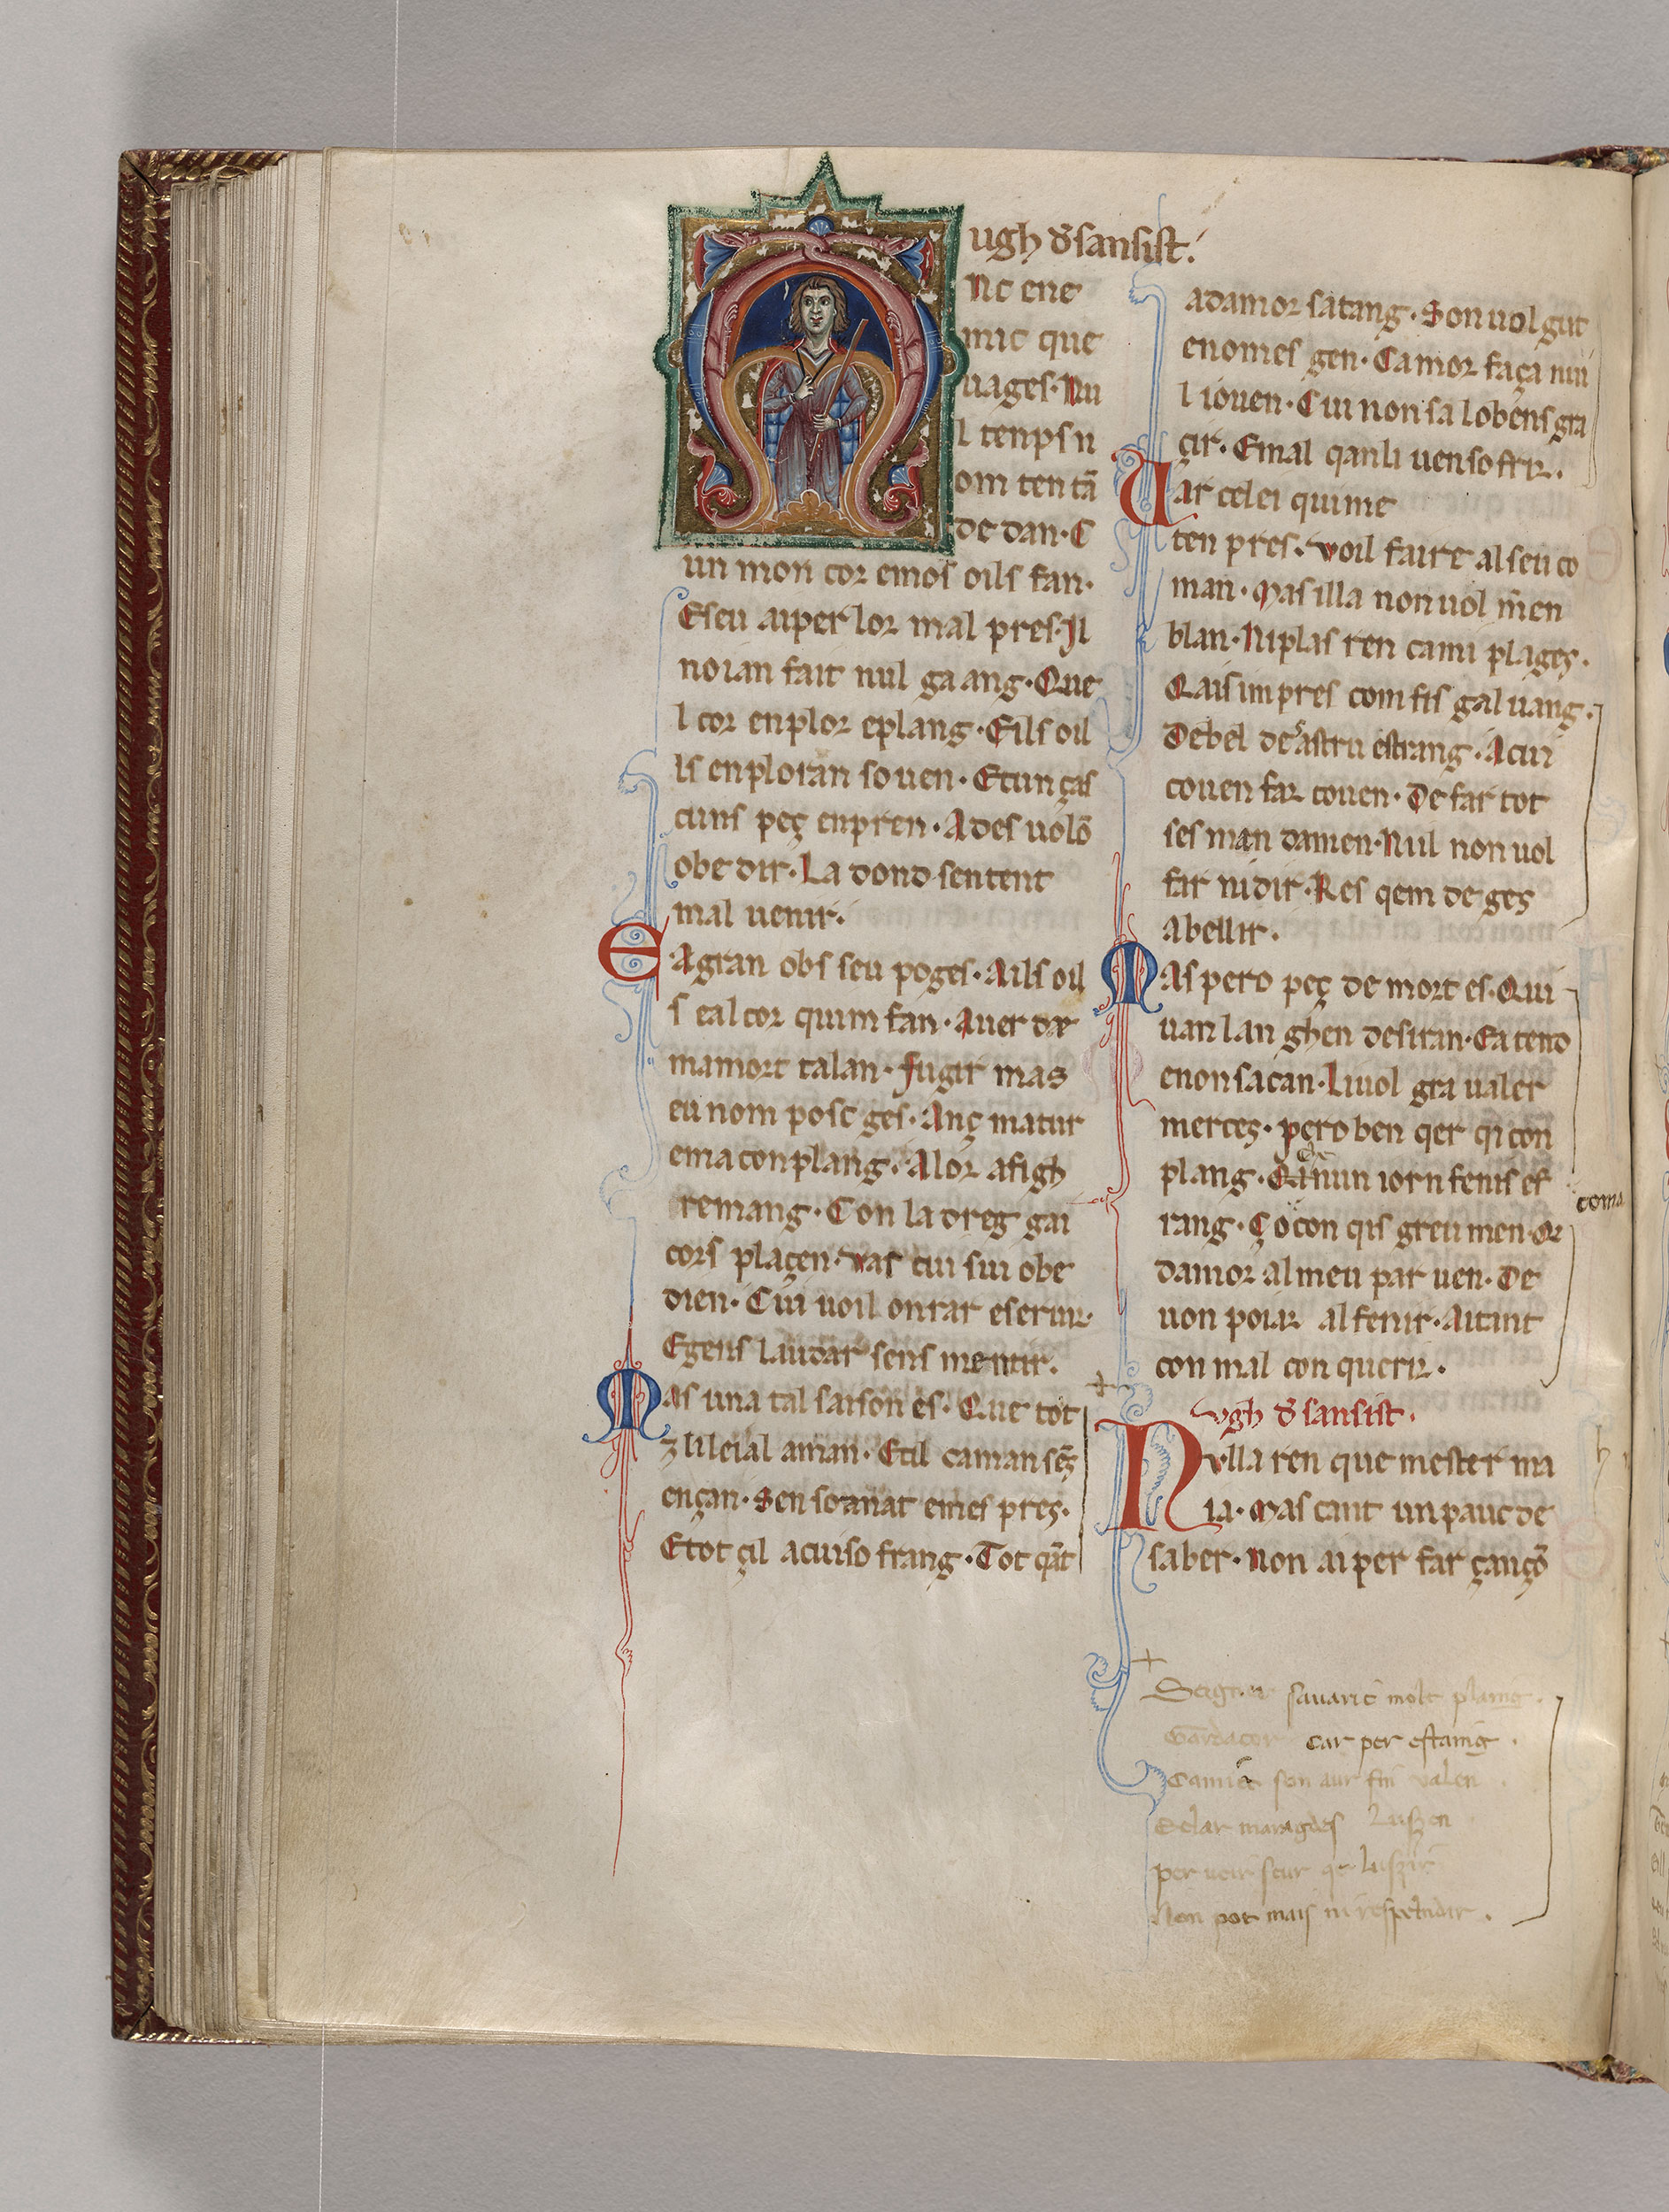 ugh d̄sansist.
nc ene
mic que
uages. Nu
l tenps n
om ten tā
de dan. C
un mon cor emos oils fan.
Eseu aiper lor mal pres. Il
noian fait nul gaang. Que
l cor enplor eplang. Eils oil
ls enploran souen. Etunças
cuns peç enpren. Ades uolō
obedir. La dond sentent
mal uenir.
EAgran obs seu poges. Ails oil
s eal cor quim fan. Auer de
mamort talan. fugir mas
eu nom posc ges. Anç matur
emaconplang. Alor afigh
remang. Con ladreg gai
cors plaçen. vas cui sui obe
dien. Cui uoil onrar eseruir.
Egens laudar sens mentir.
Mas una tal saison es. Que tot
z li leial aman. Etil caman sēz
ençan. Sen soanat emes pres.
Etot çil acuiso frang. Tot qāt
adamor satang. Son uol gut
enomes gen. Camor faça nui
l iouen. Cui non sa lobens gra
çir. Emal qanli uen sofrir.
Uar celei quime
ten pres. voil faire al seu co
man. Mas illa non uol m̄en
blan. Ni plas ren cami plages.
Caisim pres com fis galuang.
Debel desastru estrang. Acui
couen far couen. De far tot
ses man damen. Nul non uol
far nidir. Res qem de ges
abellir.
MAs pero peç de mort es. Qui
uan lan ghen desiran. Ea tend
enon sacan. Li uol gra ualer
merces. pero ben qer qi con
plang. Qanun iorn fenis es
tang. Ço con qis greu men. Or
damor al meu par uen. De
uon poiar al fenir. Aitant
con mal con querir.
vgh d̄ sansist.
Nvlla ren que mester ma
ia. Mas cant un pauc de
saber. Non ai per far çançō
Seigner sauaric molt plaing.
Gardacor car per estaing.
Camiet son aur fin valen
Eclar maragdes Luszen
per ueir seur qe luszir
Non pot mais ni respelndir.